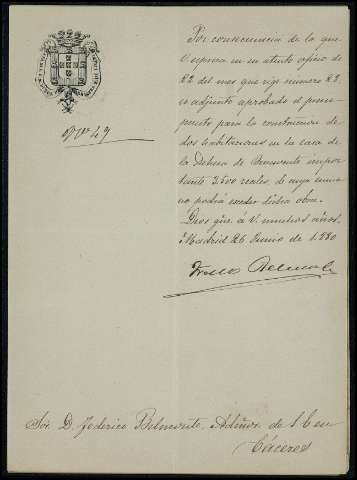 Nº 47
Por consecuencia de lo que
expresa en su atento oficio de
22 del mes que rije número 23,
es adjunto aprobado el presu-
puesto para la construcción de
dos habitaciones en la casa de
la Dehesa de Benavente impor
tante 3.500 reales, de cuya suma
no podrá exceder dicha obra.
Dios gûe á V. muchos años.
Madrid 26 Junio de 1.880
Sor. D. Federico Belmonte, Admor. de S. E. en
Cáceres